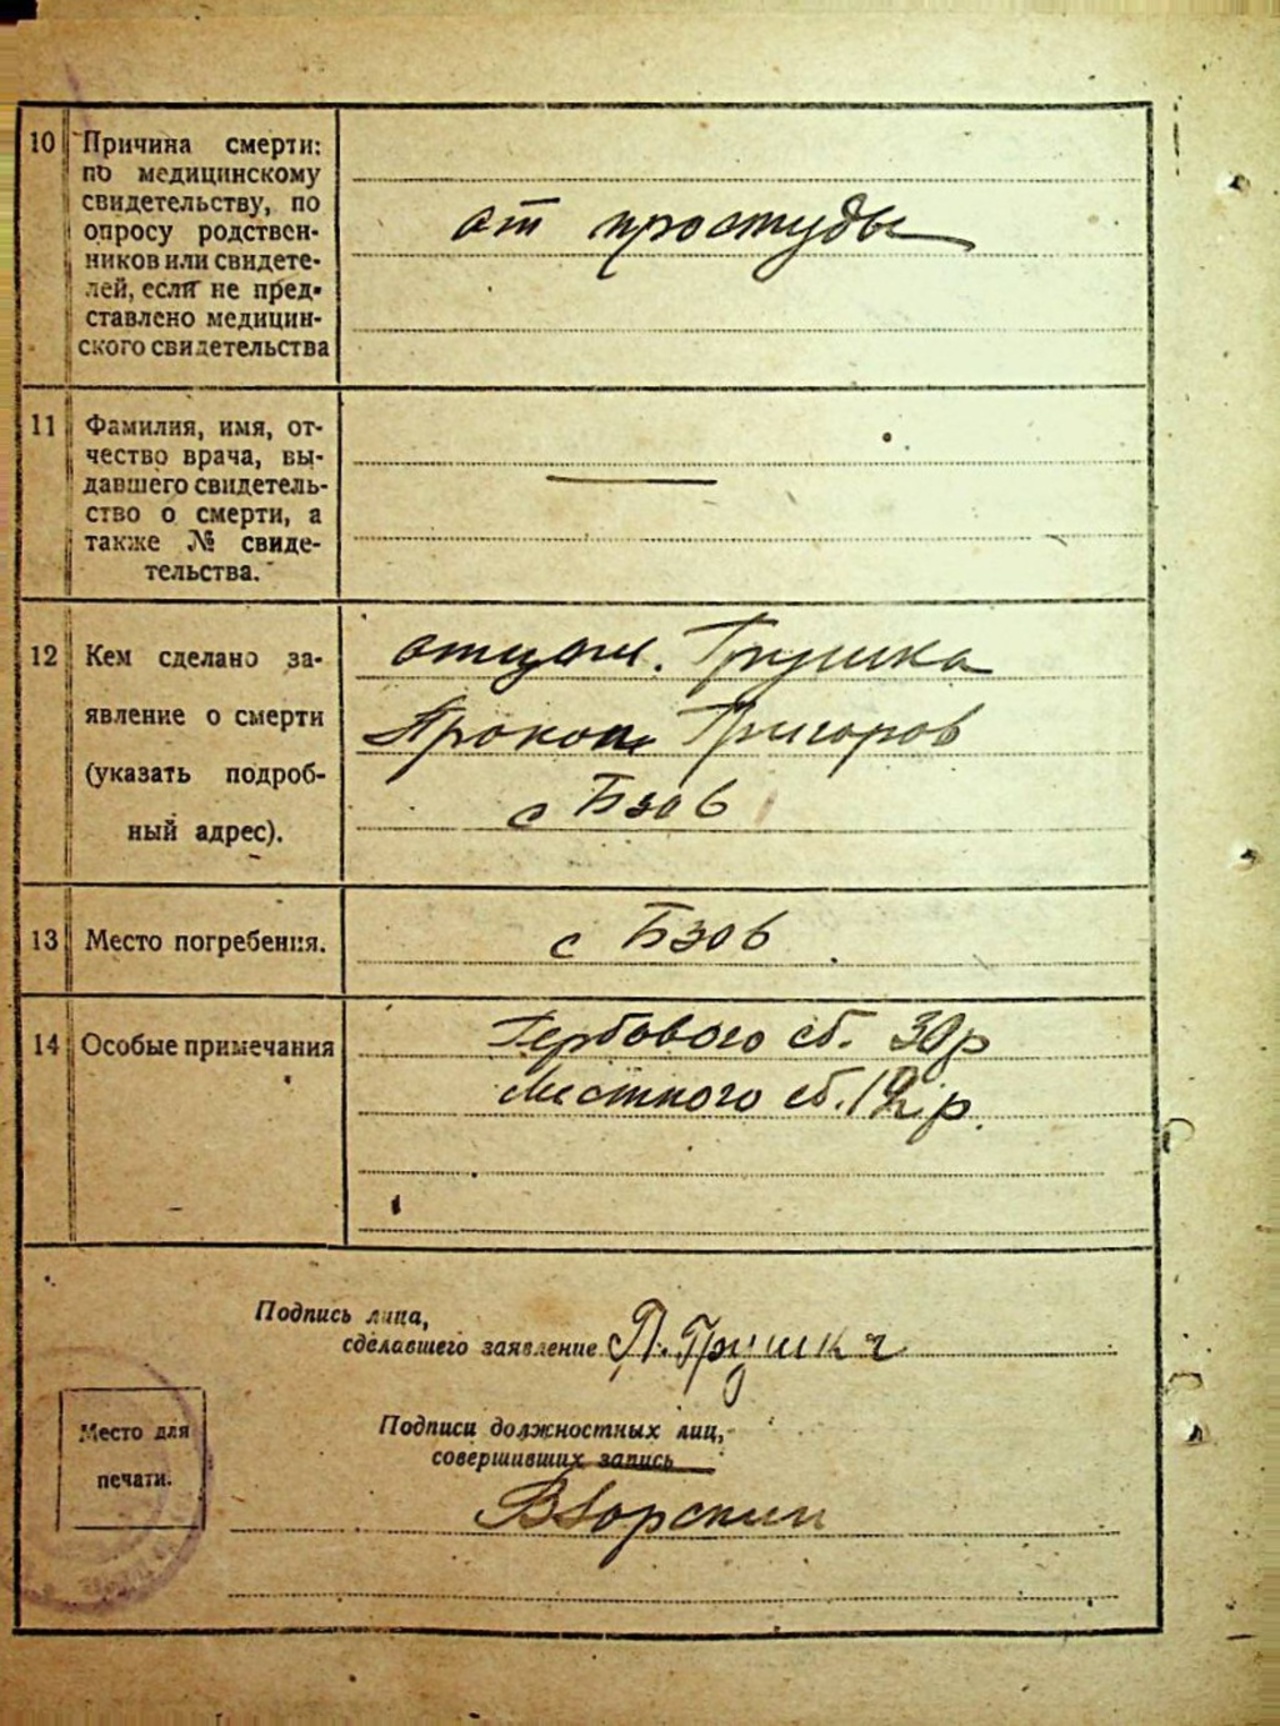 10 Причина смерти:
по медицинскому
свидетельству, по
опросу родствен-
ников или свидете-
лей, если не пред-
ставлено медицин-
ского свидетельства
от простуды
11 Фамилия, имя, от-
чество врача, вы-
давшего свидетель-
ство о смерти, а
также № свиде-
тельства.
12 Кем сделано за-
явление о смерти
(указать подроб-
ный адрес).
отцом. Грушка
Прокоп Григоров
с Бзов
13 Место погребения.
с Бзов
14 Особые примечания
Гербового сб. 30 р
Местного сб. 12 р.
Подпись лица,
сделавшего заявление П. Грушка
Подписи должностных лиц,
совершивших запись
Место для
печати.